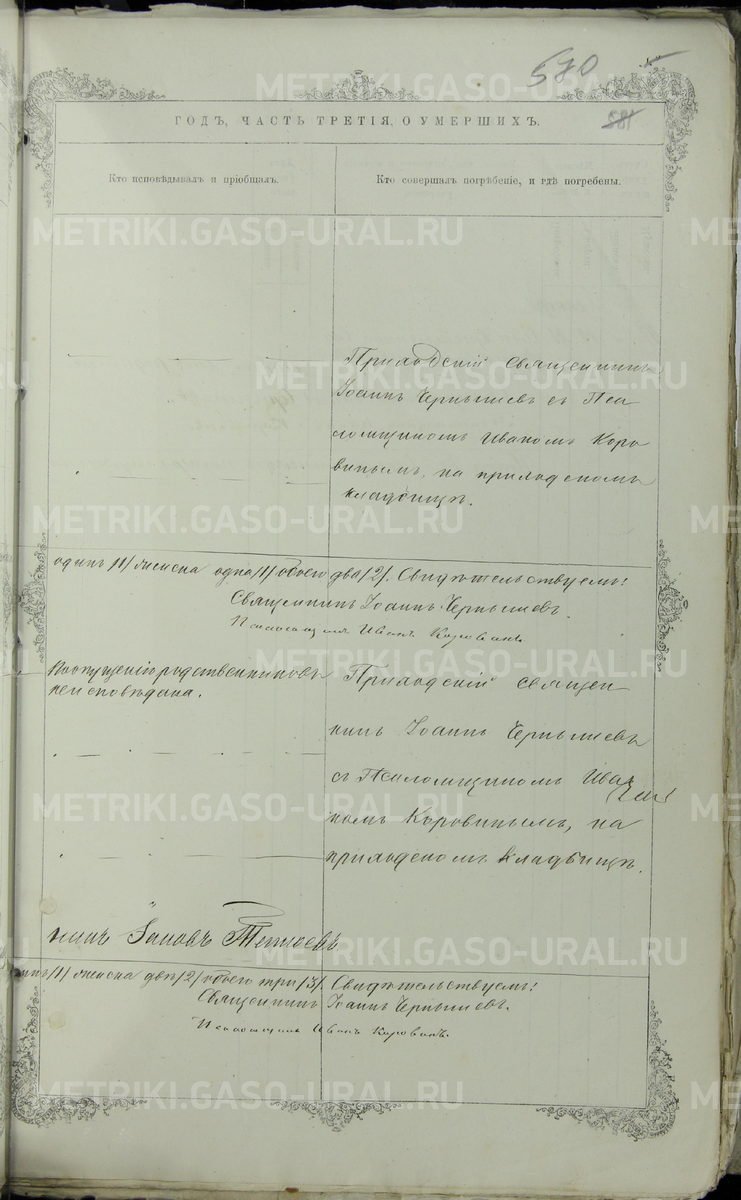 570
581
ГОДЪ, ЧАСТЬ ТРЕТІЯ, О УМЕРШИХЪ.
Кто исповѣдывалъ и пріобщалъ.
Кто совершалъ погрѣбеніе, и гдѣ погребены.
Приходскій Священникъ
Іоаннъ Чернышевъ съ Пса
ломщикомъ Иваномъ Коро
винымъ, на приходскомъ
кладбищѣ.
одинъ /1/ женска одна /1/ обоего два /2/. Свидѣтельствуемъ:
Священникъ Іоаннъ Чернышевъ.
Псаломщикъ Иванъ Коровинъ.
По опущенію родственниковъ
не исповѣдана.
Приходскій Священ
никъ Іоаннъ Чернышевъ
съ Псаломщикомъ Ива
номъ Коровинымъ, на
приходскомъ кладбищѣ.
женска двѣ /2/ обоего три /3/. Свидѣтельствуемъ:
Священникъ Іоаннъ Чернышевъ.
Псаломщикъ Иванъ Коровинъ.
METRIKI.GASO-URAL.RU